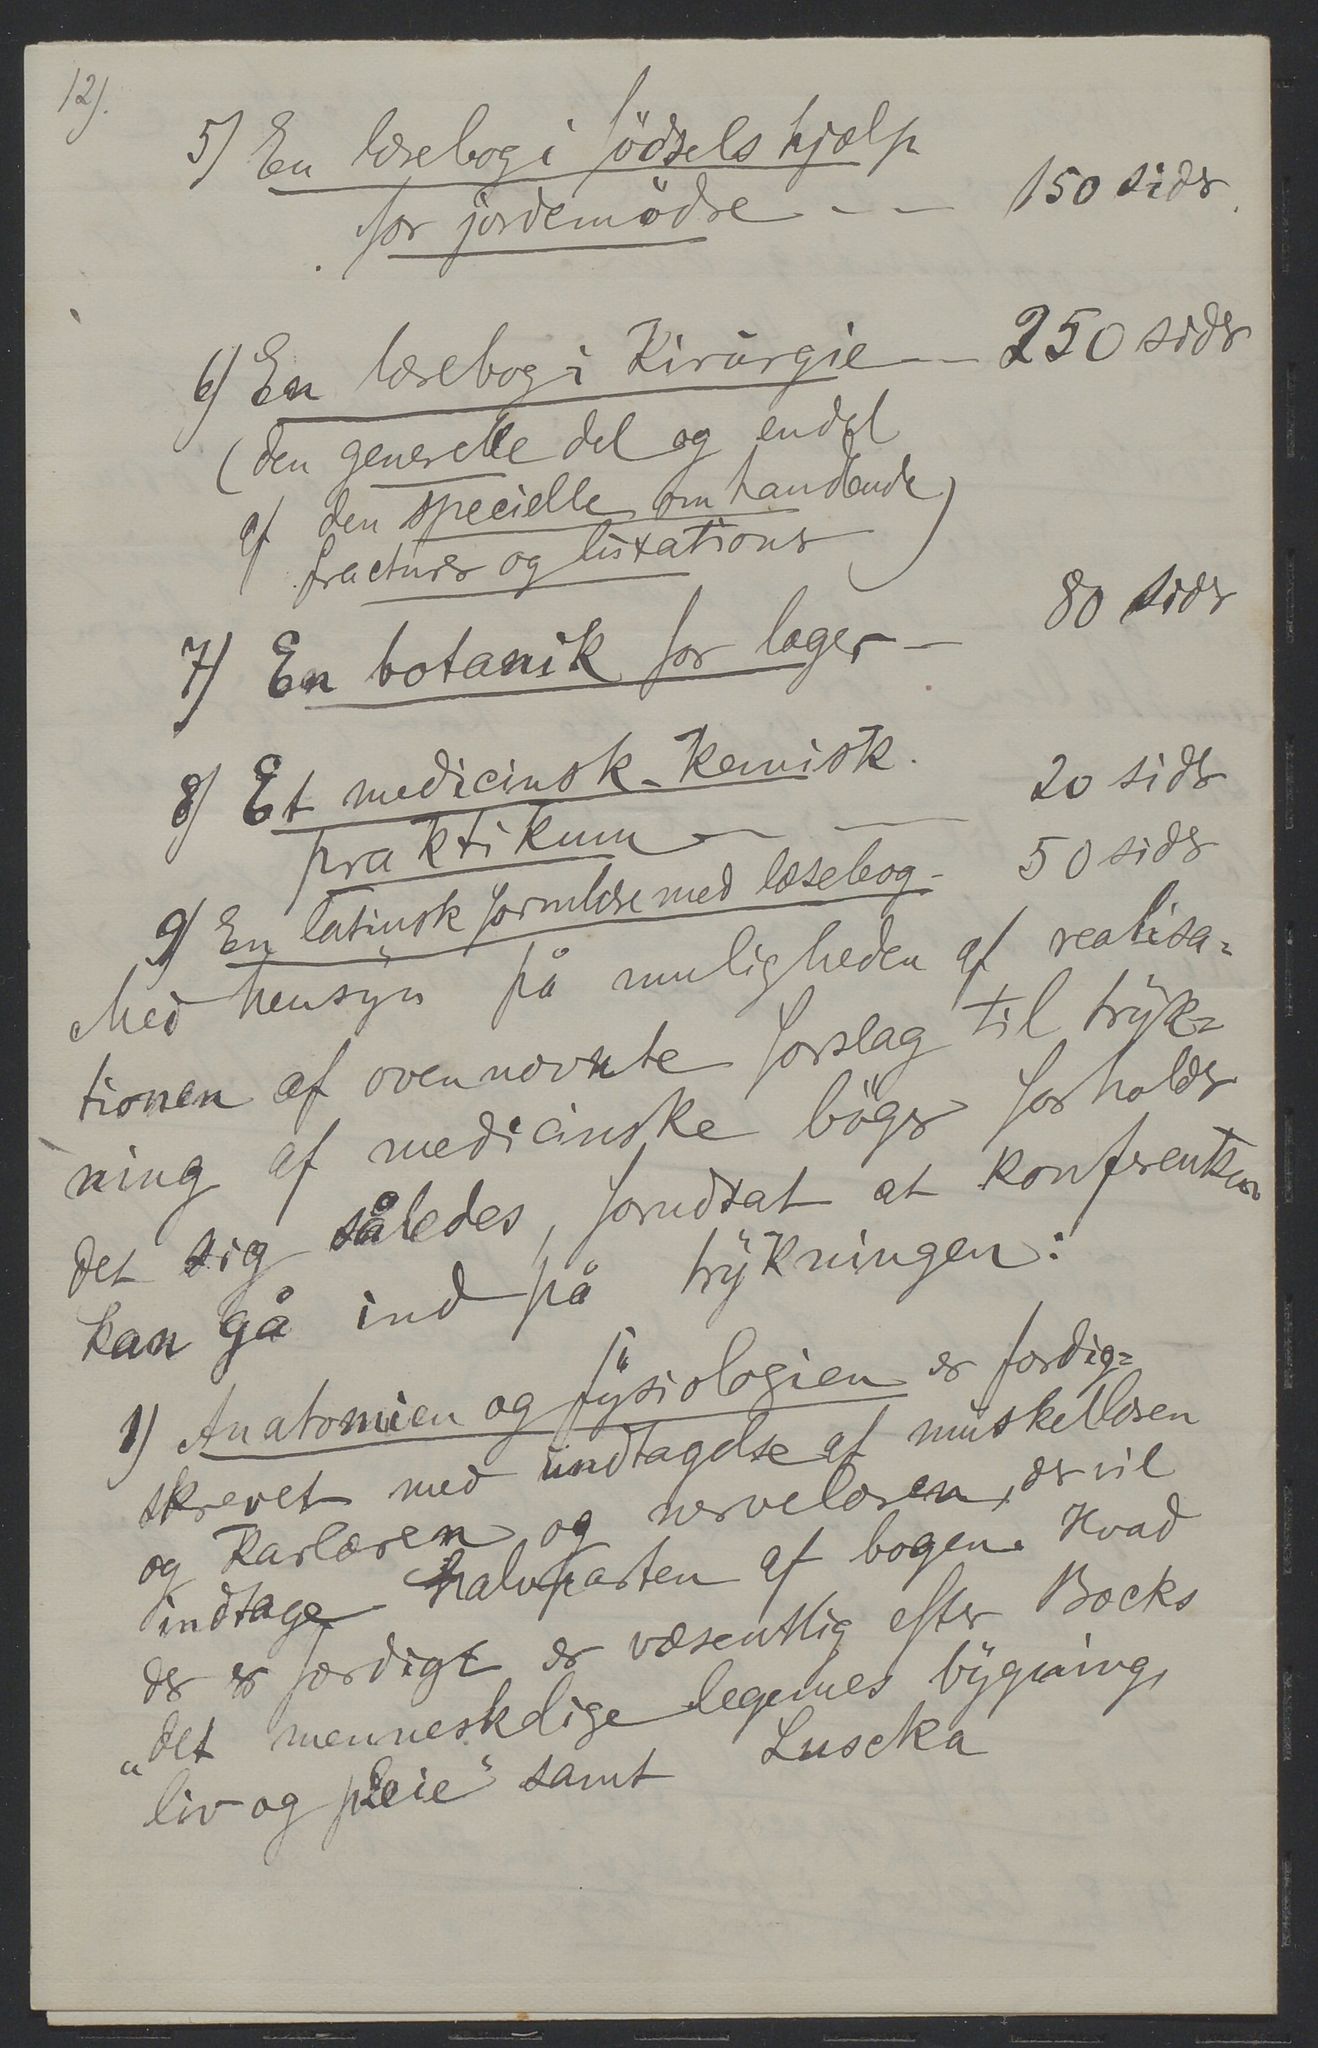 12).
5) En lærebog i födselshjælp
for jordemödre - - 150 sider.
6) En lærebog i Kirurgie - 250 sider
(den generelle del og endel
af den specielle omhandlende
fracturer og luxationer)
7) En botanik for læger - 80 sider
8) Et medicinsk-kemisk.
praktikum - - 20 sider
9) En latinsk formlære med læsebog - 50 sider
Med hensyn på muligheden af realisa=
tionen af ovennævnte forslag til tryk=
ning af medicinske böger forholder
det sig således, forudsat at konferentsen
kan gå ind på trykningen:
1) Anatomien og fysiologien er færdig=
skrevet med undtagelse af muskellæren
og karlæren og nervelæren, der vil
indtage halvparten af bogen. Hvad
der er færdigt er væsentlig efter Bocks
„det menneskelige legemes bygning,
liv og pleie" samt Luscka